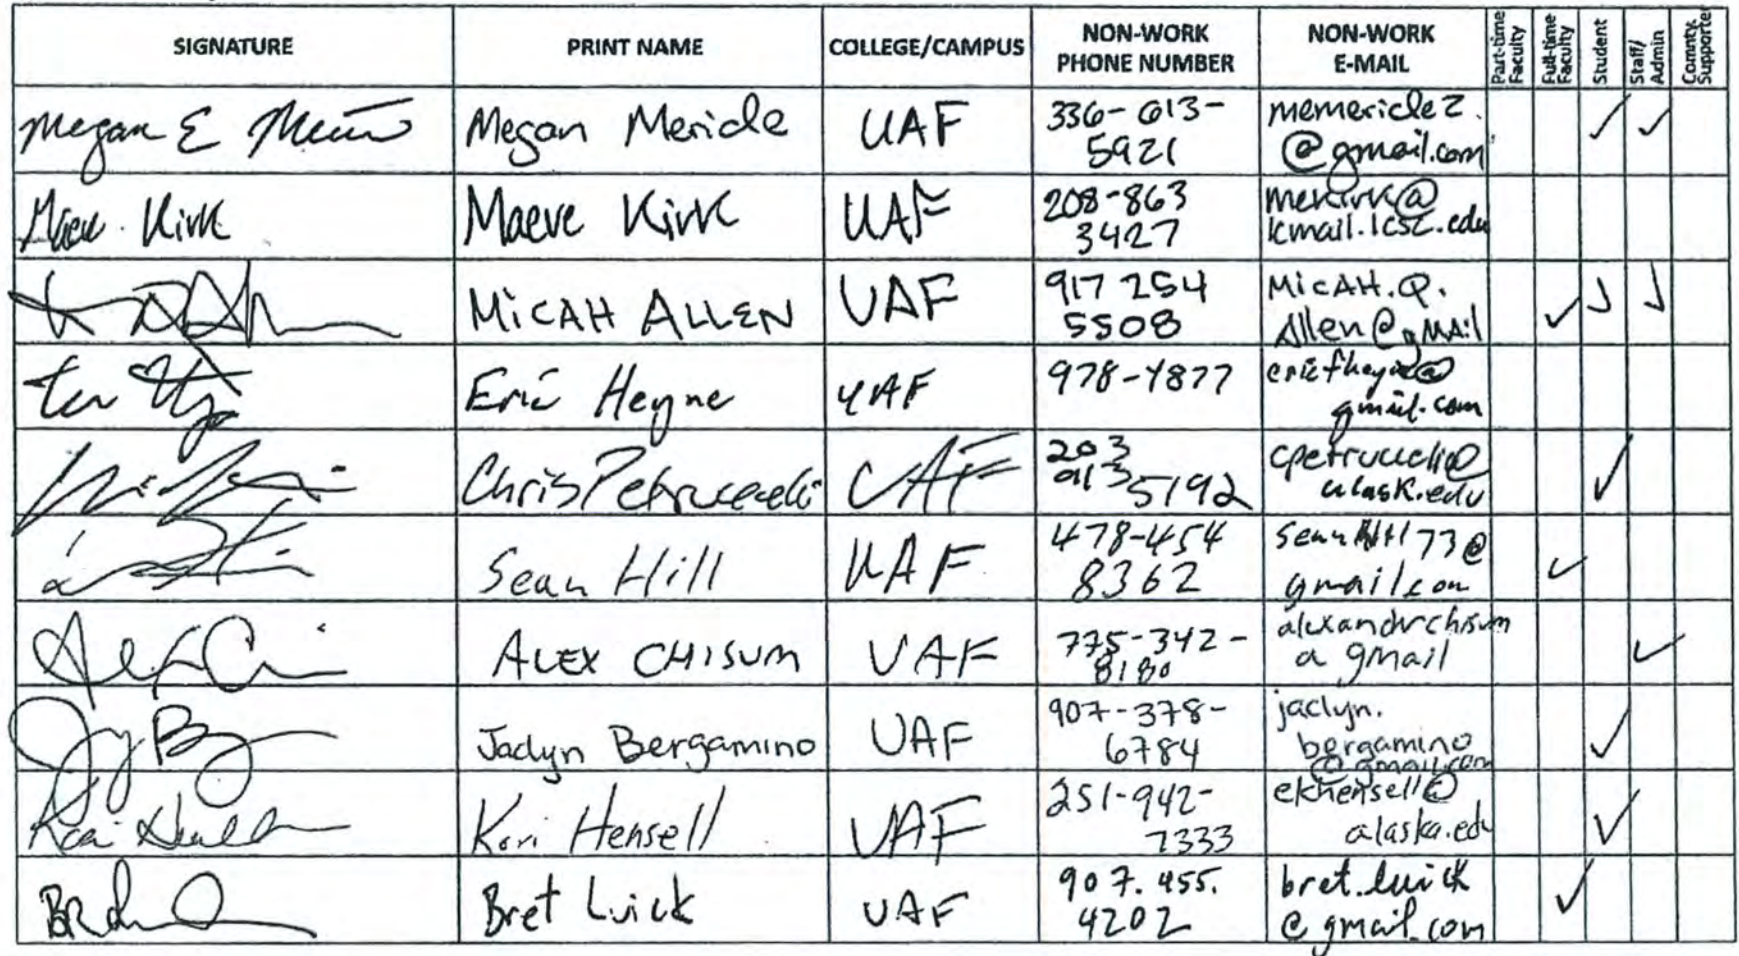 SIGNATURE PRINT NAME COLLEGE/CAMPUS NON-WORK PHONE NUMBER NON-WORK E-MAIL Part-time Faculty Full-time Faculty Student Staff/ Admin Commty. Supporter
Megan E Megan Mericle UAF 336-613- memericle2.
5921 @gmail.com ✓ ✓
Maeve Kirk Maeve Kirk UAF 208-863 mekirk@
3427 kmail.lcsc.edu
MiCAH ALLEN UAF 917 254 MicAH.Q.
5508 Allen@gMAil ✓ ✓ ✓
Eric Heyne UAF 978-4877 ericfheyne@
gmail.com
Chris Petruccelli UAF 203 cpetruccelli@
913 5192 alask.edu ✓
Sean Hill UAF 478-454 seanhill73@
8362 gmail.com ✓
ALEX CHISUM UAF 775-342- alexandrchisum
8180 a gmail ✓
Jaclyn Bergamino UAF 907-378- jaclyn.
6784 bergamino
@gmail.com ✓
Kori Hensell UAF 251-942- ekhensell@
7333 alaska.edu ✓
Bret Luick UAF 907.455. bret.luick
4202 @gmail.com ✓